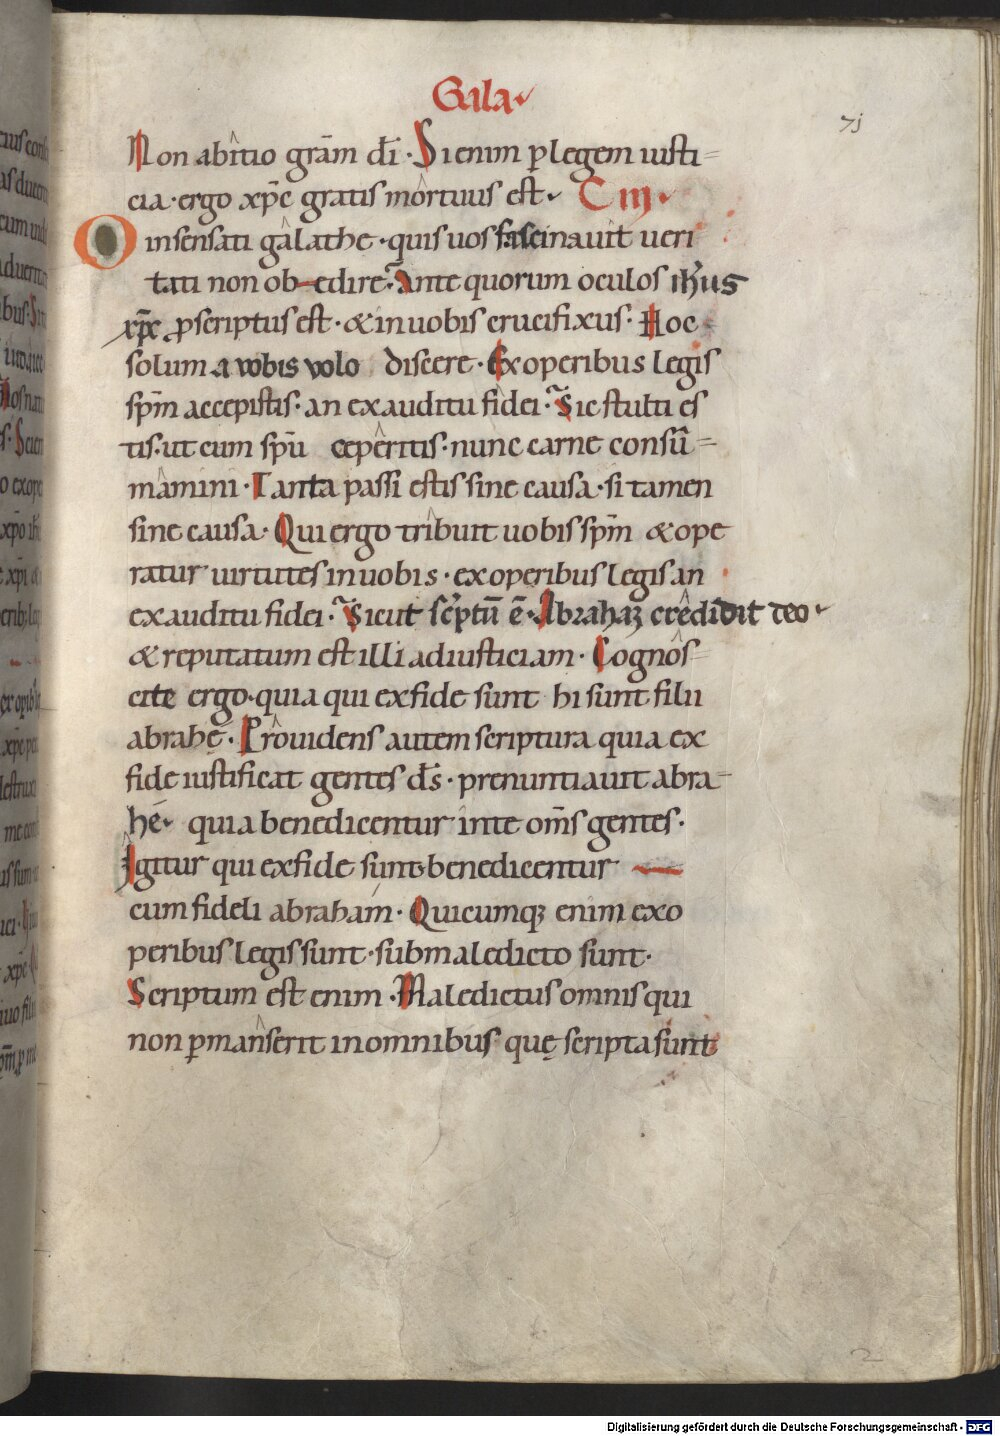 Gala
7j
Non abitio grām dī · Si enim ꝑ legem iusti=
cia · ergo xp̄c gratis mortuus est · C iij ·
O insensati galathe · quis uos fascinauit ueri
tati non ob-edire · Ante quorum oculos ih̄us
xp̄c ꝓscriptus est · & in uobis crucifixus · Hoc
solum a vobis volo discere · Ex operibus legis
sp̄m accepistis · an ex auditu fidei · Sic stulti es
tis · ut cum sp̄u ceperitis · nunc carne consū=
mamini · Tanta passi estis sine causa · si tamen
sine causa · Qui ergo tribuit uobis sp̄m & ope
ratur uirtutes in uobis · ex operibus legis an
ex auditu fidei · Sicut sc̄ptū ē · Abrahaʒ credidit deo
& reputatum est illi ad iusticiam · Cognos=
cite ergo · quia qui ex fide sunt hi sunt filii
abrahę · Prouidens autem scriptura quia ex
fide iustificat gentes ds̄ · prenuntiauit abra-
hé quia benedicentur in te om̄s gentes ·
Igitur qui ex fide sunt · benedicentur
cum fideli abraham · Quicumqʒ enim ex o
peribus legis sunt · sub maledicto sunt ·
Scriptum est enim · Maledictus omnis qui
non ꝑmanserit in omnibus quę scripta sunt
2
Digitalisierung gefördert durch die Deutsche Forschungsgemeinschaft · DFG